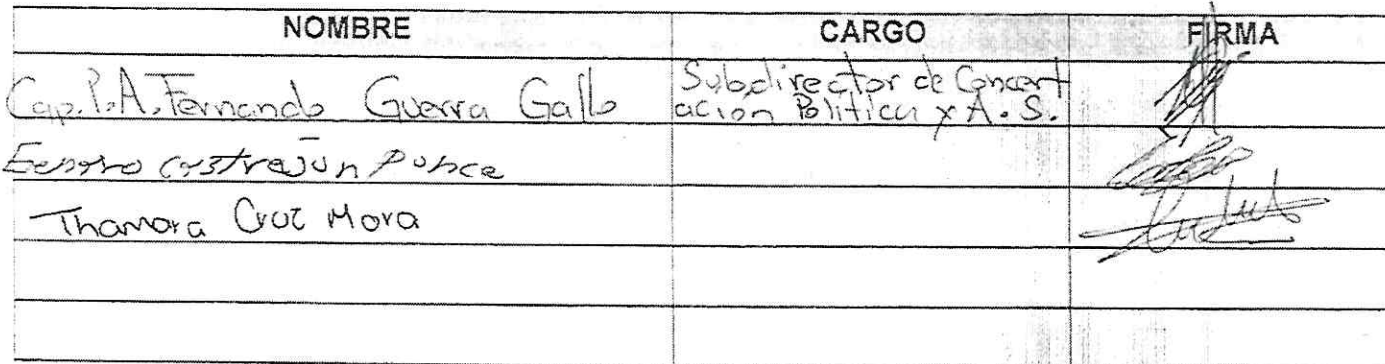 NOMBRE CARGO FIRMA
Cap. P.A. Fernando Guerra Gallo Subdirector de Concert
acion Politica y A.S.
Ponce
Thamara Cruz Mora